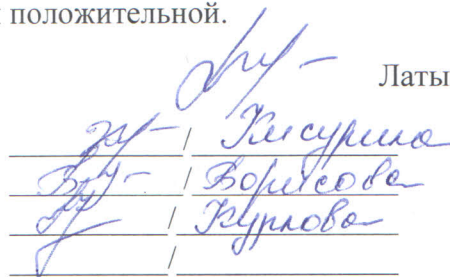 положительной.
Латы
/ Кисурина
/ Борисова
/ Курлова
/